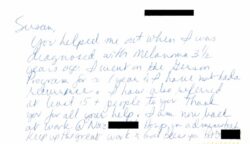 Susan,
You helped me out when I was
diagnosed with Melanoma 3½
years ago. I went on the Gerson
Program for a 1 year & I have not had a
recurrence. I have also referred
at least 15 + people to you thank
you for all your help. I am now back
at work @ Hospital
keep up the great work &